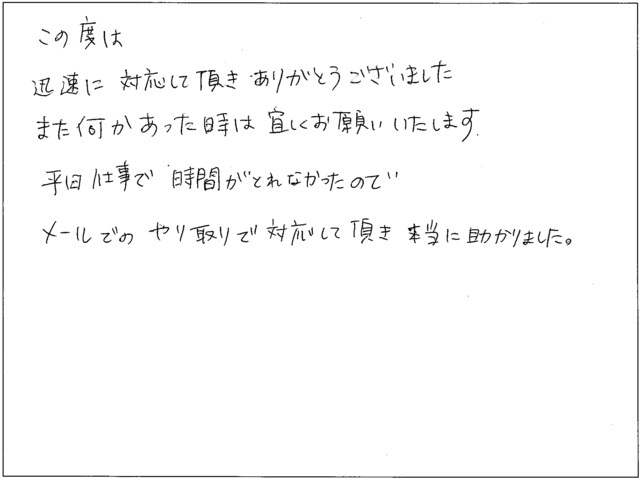 この度は
迅速に 対応して頂き ありがとうございました
また何かあった時は 宜しくお願いいたします.
平日 仕事で 時間がとれなかったので
メールでの やり取りで 対応して 頂き 本当に助かりました。